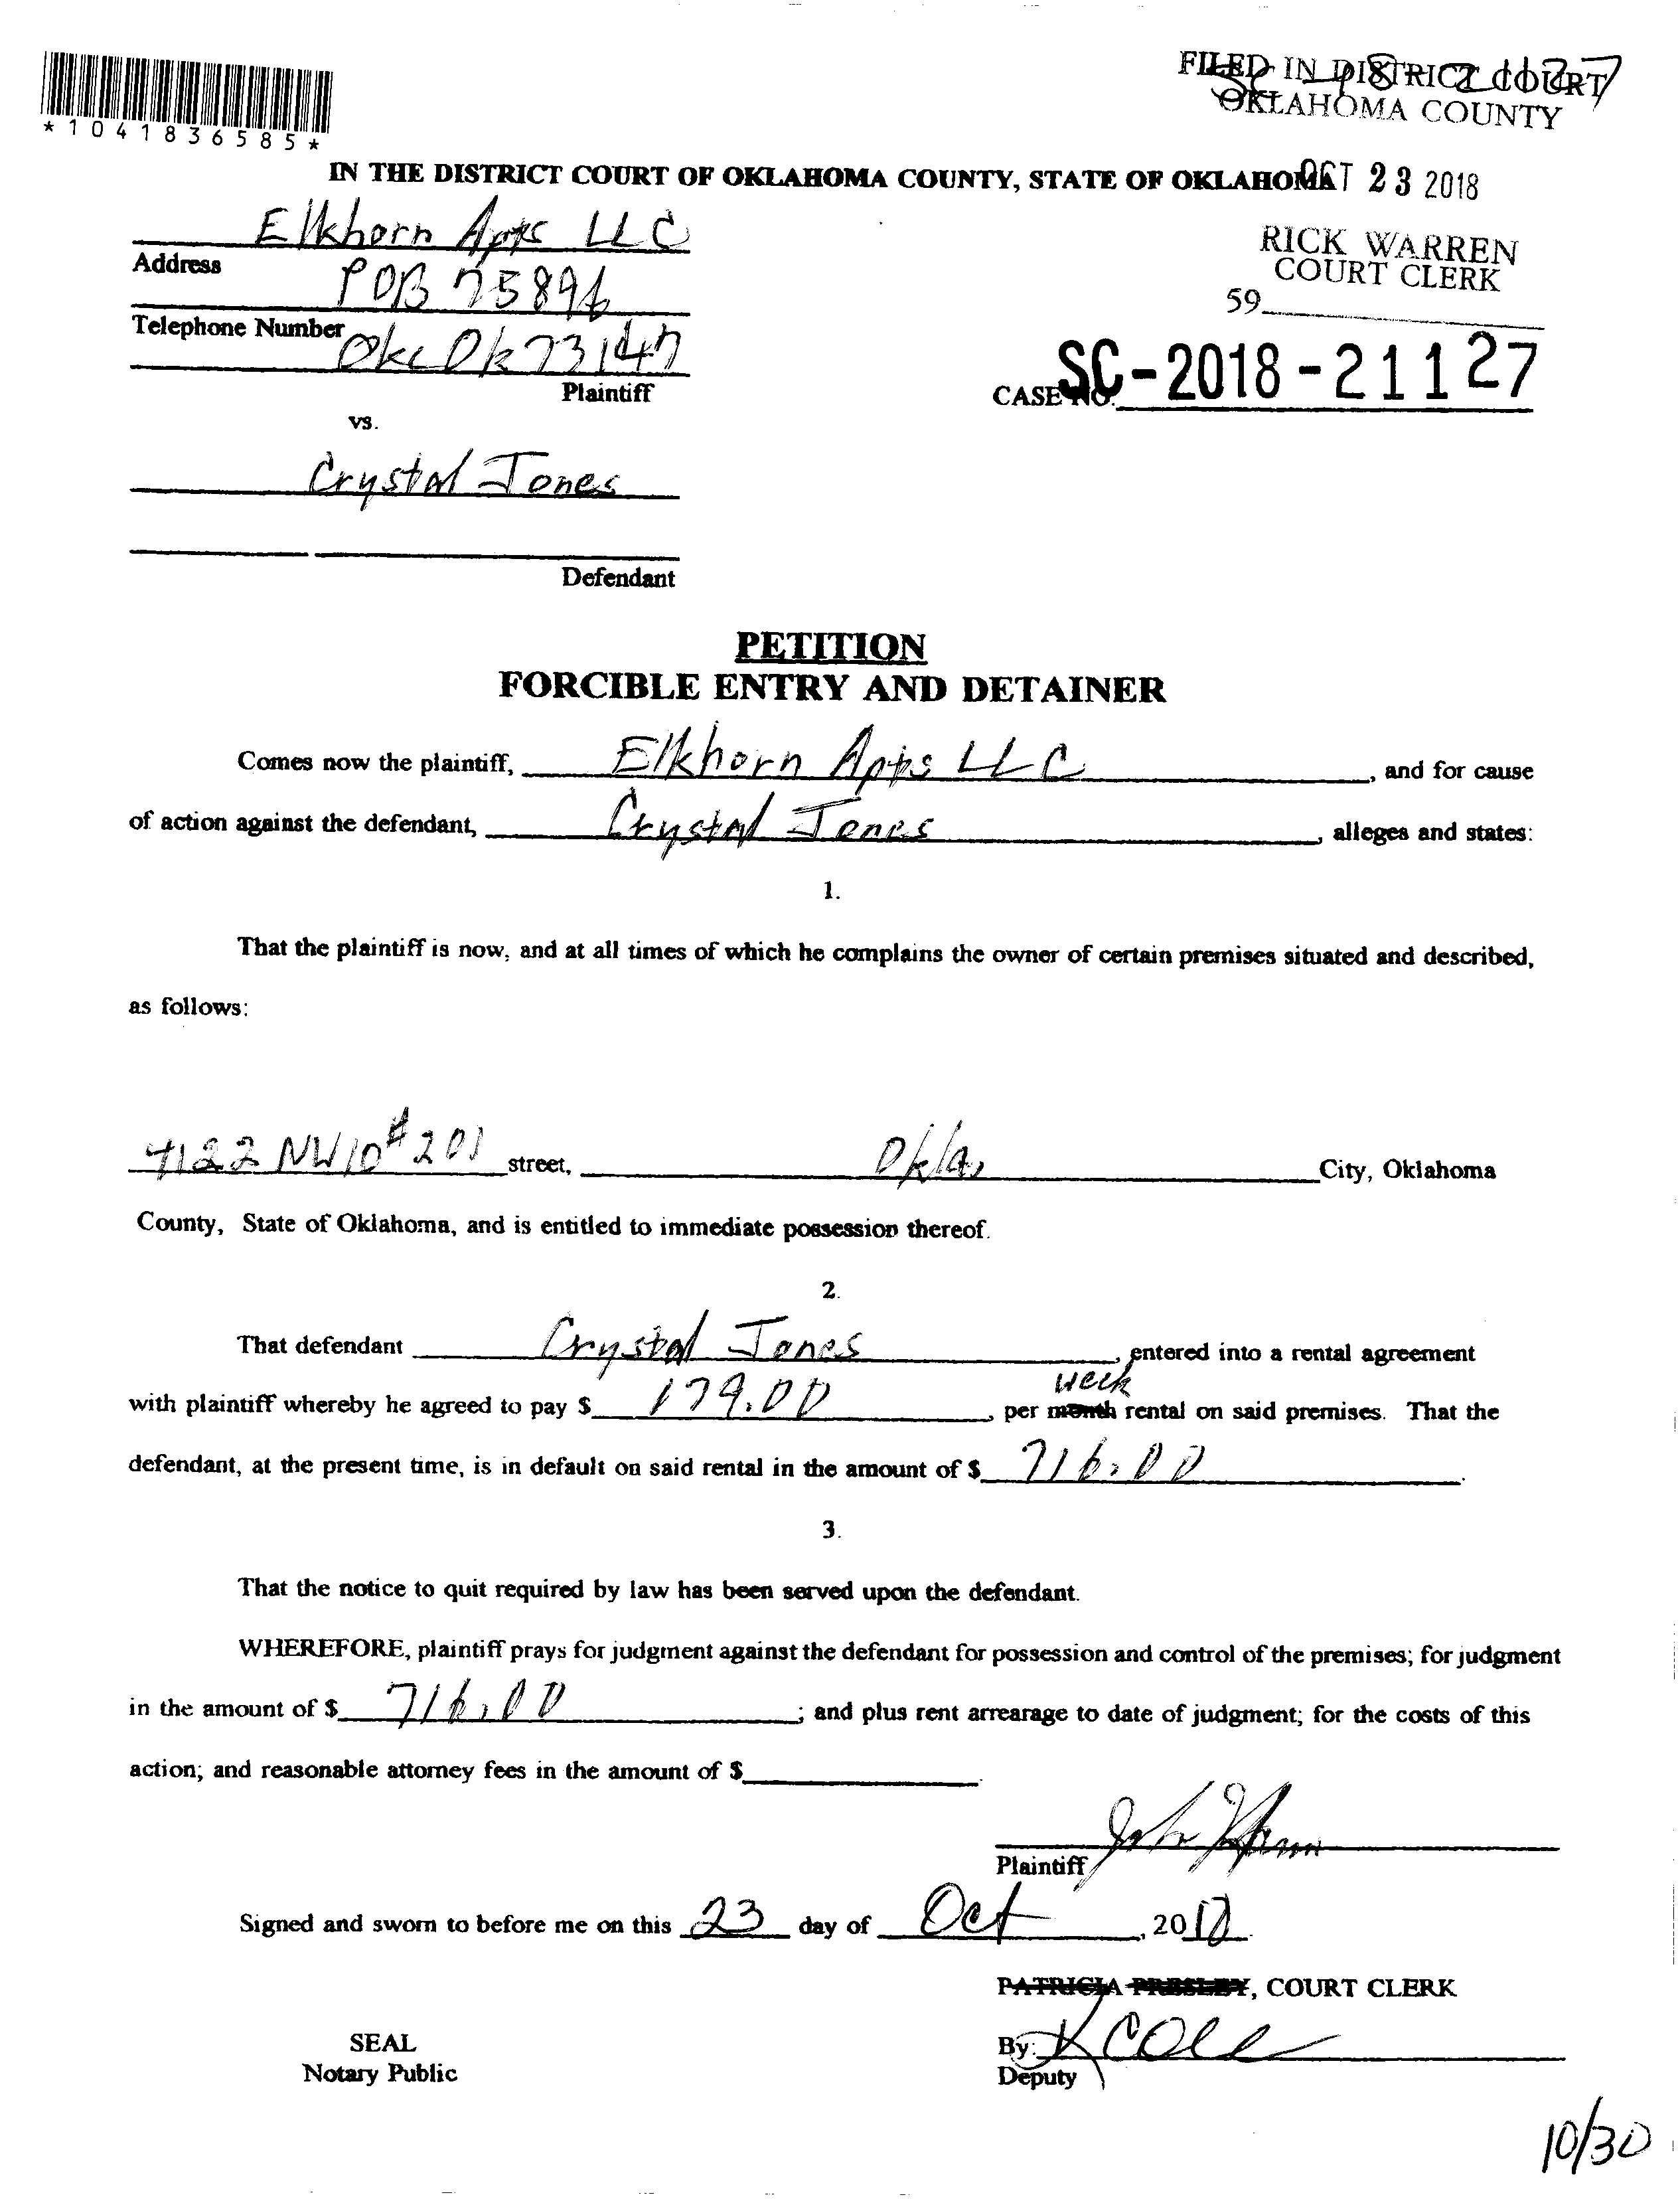 *1041836585*
FILED IN DISTRICT COURT
OKLAHOMA COUNTY
IN THE DISTRICT COURT OF OKLAHOMA COUNTY, STATE OF OKLAHOMA
OCT 23 2018
Elkhorn Apts LLC
RICK WARREN
COURT CLERK
Address
POB 75896
59
Telephone Number
Okc Ok 73147
Plaintiff
CASE NO. SC-2018-21127
vs.
Crystal Jones
Defendant
PETITION
FORCIBLE ENTRY AND DETAINER
Comes now the plaintiff, Elkhorn Apts LLC, and for cause
of action against the defendant, Crystal Jones, alleges and states:
1.
That the plaintiff is now, and at all times of which he complains the owner of certain premises situated and described,
as follows:
4122 NW 10 #201 street, Okla, City, Oklahoma
County, State of Oklahoma, and is entitled to immediate possession thereof.
2.
That defendant Crystal Jones, entered into a rental agreement
week
with plaintiff whereby he agreed to pay $ 179.00, per month rental on said premises. That the
defendant, at the present time, is in default on said rental in the amount of $ 716.00.
3.
That the notice to quit required by law has been served upon the defendant.
WHEREFORE, plaintiff prays for judgment against the defendant for possession and control of the premises; for judgment
in the amount of $ 716.00; and plus rent arrearage to date of judgment; for the costs of this
action; and reasonable attorney fees in the amount of $.
Plaintiff
Signed and sworn to before me on this 23 day of Oct, 2018.
PATRICIA PRESLEY, COURT CLERK
SEAL
By: K Cole
Notary Public
Deputy
10/30